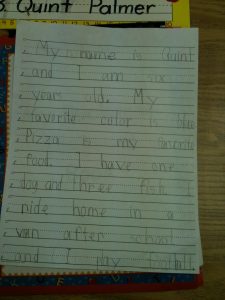 3 Quint Palmer
My name is Quint
and I am six
years old. My
faverite color is blue
Pizza is my favorite
food. I have one
dog and three fish. I
ride home in a
van after school
and I play football